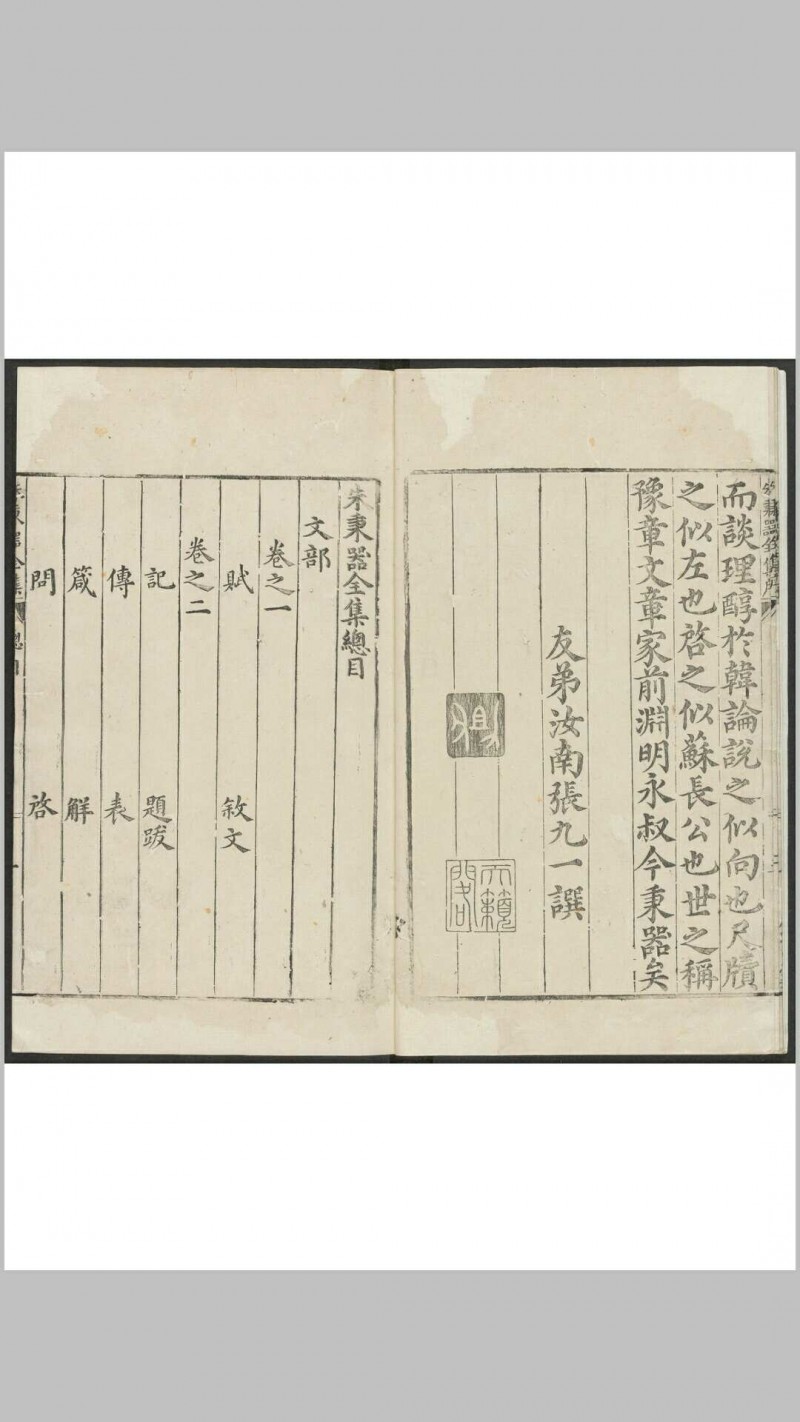 而談理醇於韓論說之似向也尺牘
之似左也啓之似蘇長公也世之稱
豫章文章家前淵明永叔今秉器矣
友弟汝南張九一譔
天籟閣
朱秉器全集總目
文部
卷之一
賦 敘文
卷之二
記 題跋
傳 表
箴 解
問 啓